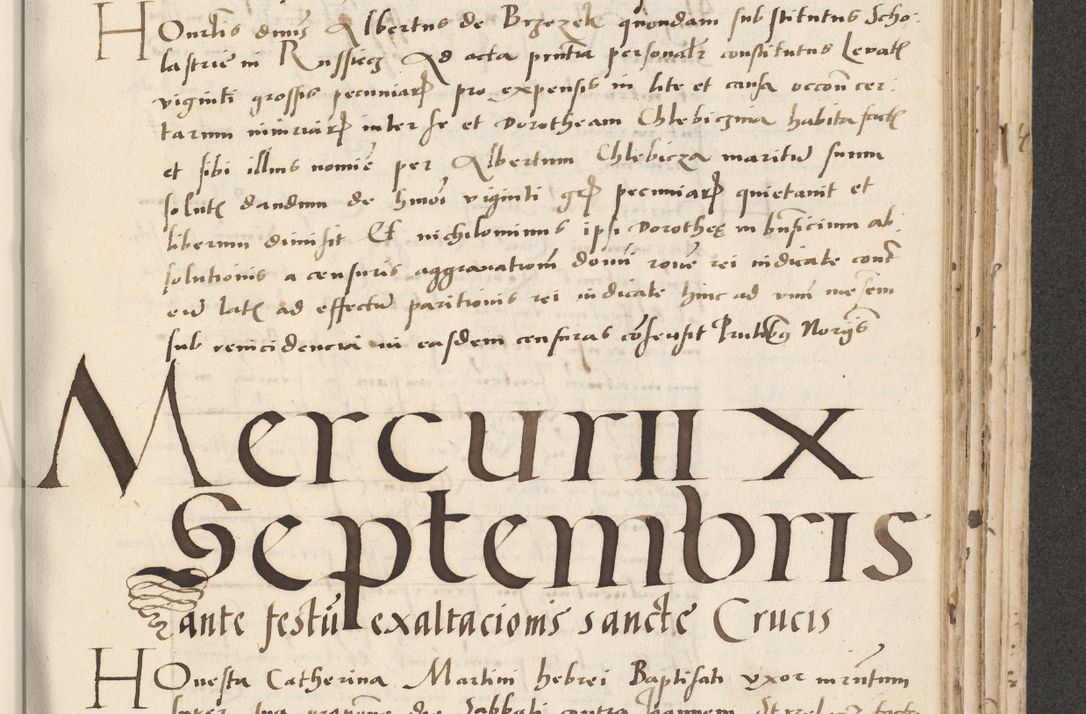 Honrlis dnus Albertus de Brzezek quondam substitutus Scho
lastrie in Russiecz Ad acta pnta personalr constitutus Levatis
viginti grossis pecuniar pro expensis in lite et causa occon cer
tarum iniuriar inter se et Dorotheam Chlebiczina habita factis
et sibi illius nomie per Albertum Chlebicza maritu suum
solutis dandum de hmoi viginti gr pecuniar quietavit et
liberum dimisit Et nichilominus ipsi Dorothee in bnficium ab
solutionis a censuris aggravatiom domi rone rei iudicate cont
eu latis ad effectu paritionis rei iudicate hinc ad unu mesem
sub reincidencia in easdem censuras cosensit Prntibus Noriis
Mercurii X
Septembris
ante festu exaltacionis sancte Crucis
Honesta Catherina Martini hebrei Baptisati uxor iurntum
super die Sabbati contra